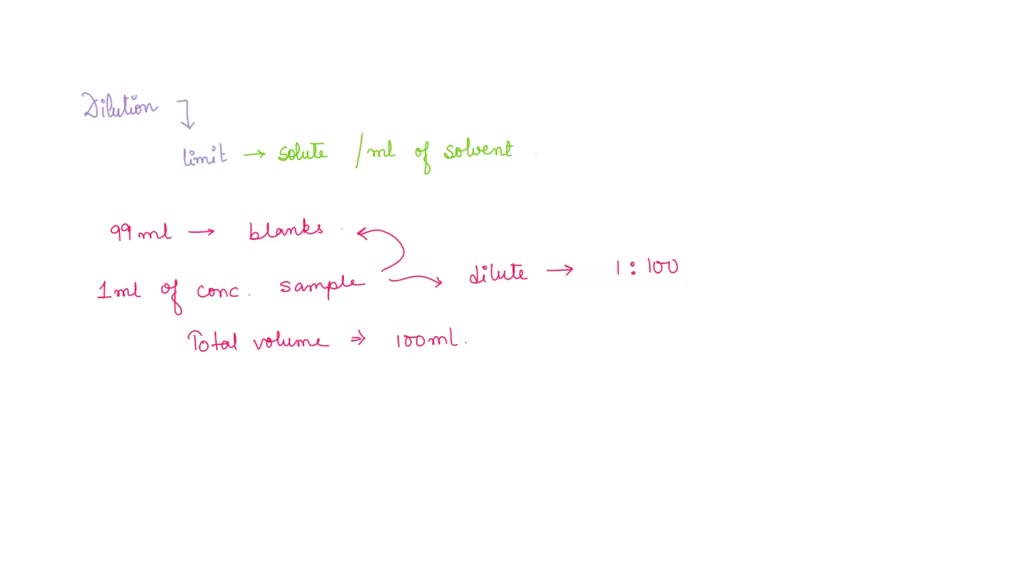 Dilution
limit → solute /ml of solvent
99 ml → blanks
1ml of conc. sample → dilute → 1 : 100
Total volume ⇒ 100ml.